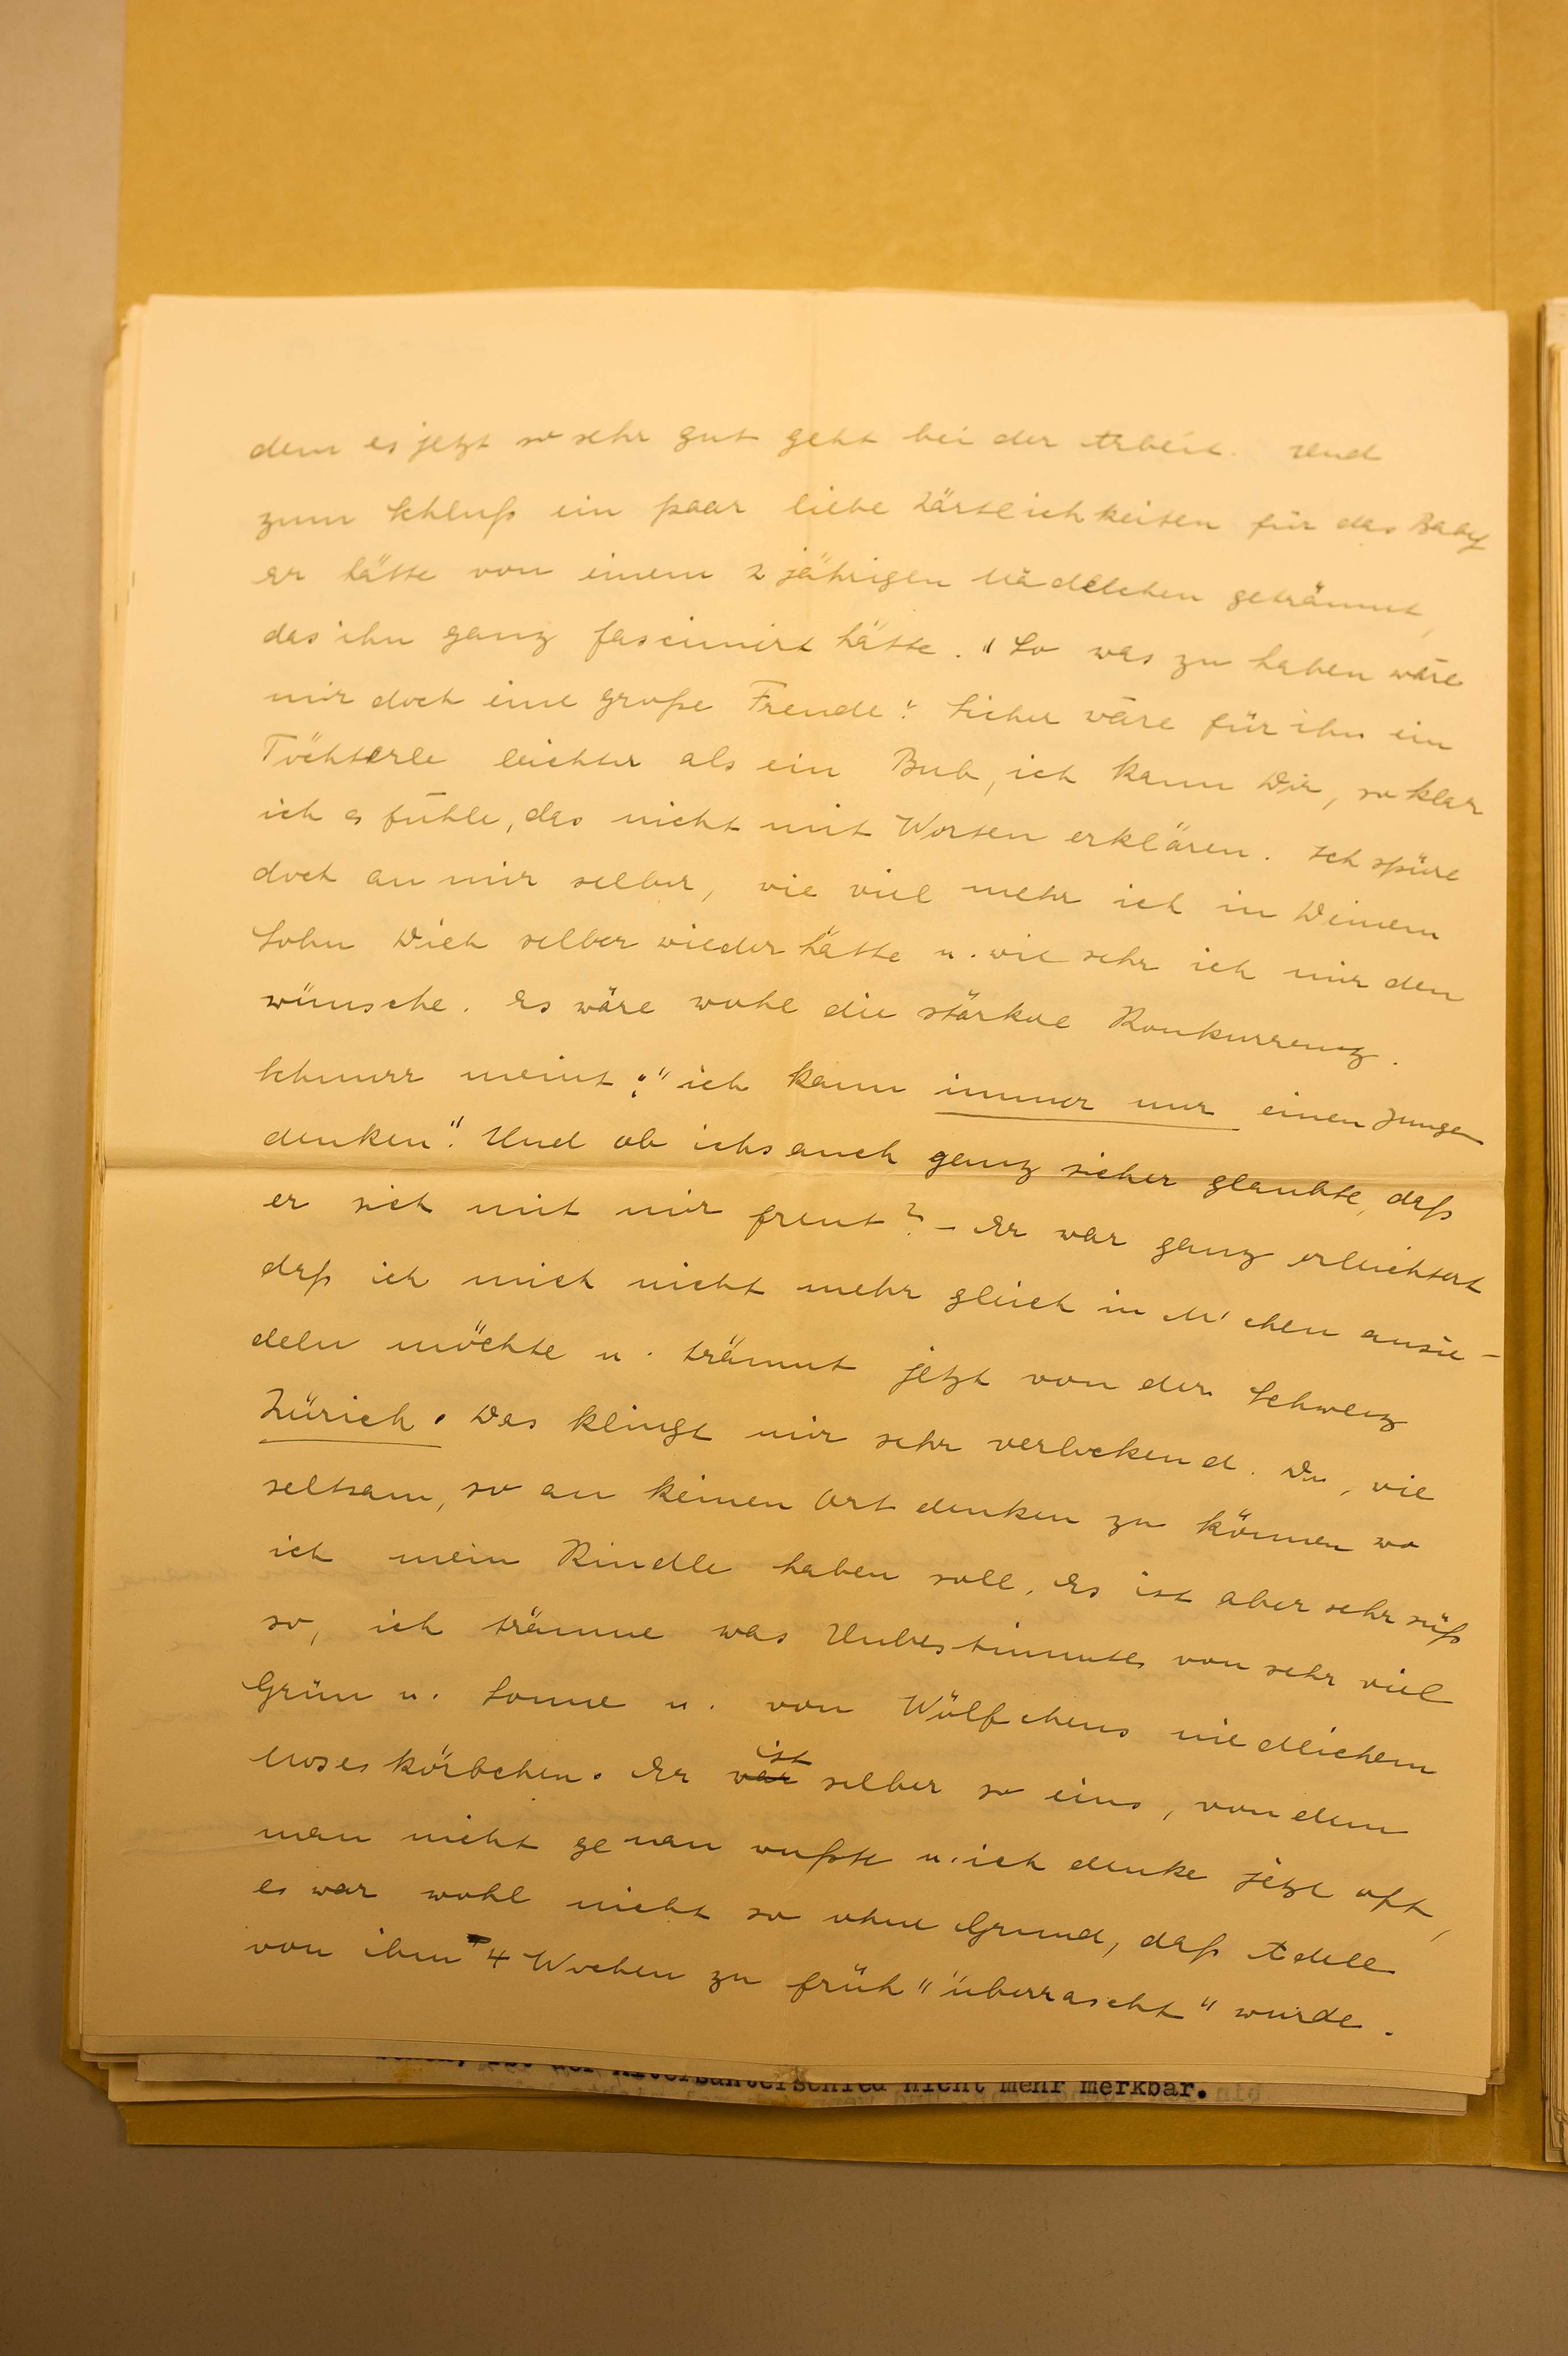 dem es jetzt so sehr gut geht bei der Arbeit. Und
zum Schluß ein paar liebe Zärtlichkeiten für das Baby
er hätte von einem 2 jährigen Mädelchen geträumt,
das ihn ganz fascinirt hätte. "So was zu haben wäre
mir doch eine große Freude". Sicher wäre für ihn ein
Töchterle leichter als ein Bub, ich kann Dir, so klar
ich es fühle, das nicht mit Worten erklären. Ich spüre
doch an mir selber, wie viel mehr ich in Deinem
Sohn Dich selber wieder hätte u. wie sehr ich mir den
wünsche. Es wäre wohl die stärkre Konkurrenz.
Schnurr meint: "ich kann immer nur einen Jungen
denken". Und ob ichs auch ganz sicher glaubte, daß
er sich mit mir freut? - Er war ganz erleichtert
daß ich mich nicht mehr gleich in M'chen ansie-
deln möchte u. träumt jetzt von der Schweiz
Zürich. Das klingt mir sehr verlockend. Du, wie
seltsam, so an keinen Ort denken zu können wo
ich mein Kindle haben soll. Es ist aber sehr süß
so, ich träume was Unbestimmtes von sehr viel
Grün u. Sonne u. von Wölfchens niedlichem
Moseskörbchen. Er war ist selber so eins, von dem
man nicht genau wußte u. ich denke jetzt oft,
es war wohl nicht so ohne Grund, daß Adele
von ihm 4 Wochen zu früh "überrascht" wurde.
ist der Altersunterschied nicht mehr merkbar.